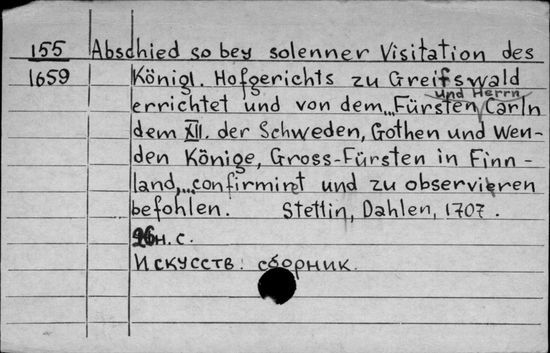 155 Abschied so bey solenner Visitation des
1659 Königl. Hofgerichts zu Greifswald
errichtet und von dem... Fürsten und Herrn Carln
dem XII. der Schweden, Gothen und Wen-
den Könige, Gross-Fürsten in Finn-
land,... confirmiret und zu observieren
befohlen. Stettin, Dahlen, 1707.
26 н. с.
Искусств. сборник.